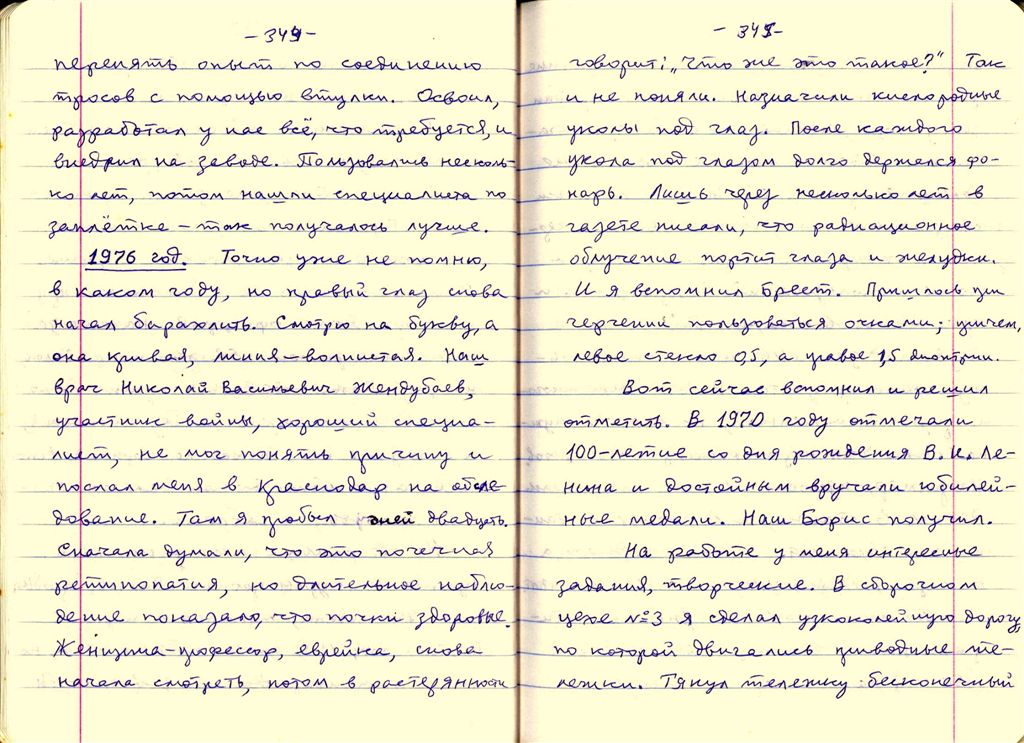 - 344 -
перенять опыт по соединению
тросов с помощью втулки. Освоил,
разработал у нас всё, что требуется, и
внедрил на заводе. Пользовались несколь-
ко лет, потом нашли специалиста по
заплётке – так получалось лучше.
1976 год. Точно уже не помню,
в каком году, но правый глаз снова
начал барахлить. Смотрю на букву, а
она кривая, линия – волнистая. Наш
врач Николай Васильевич Жендубаев,
участник войны, хороший специа-
лист, не мог понять причину и
послал меня в Краснодар на обсле-
дование. Там я пробыл дней двадцать.
Сначала думали, что это почечная
ретинопатия, но длительное наблю-
дение показало, что почки здоровые.
Женщина-профессор, еврейка, снова
начала смотреть, потом в растерянности
- 345 -
говорит: „Что же это такое?" Так
и не поняли. Назначили кислородные
уколы под глаз. После каждого
укола под глазом долго держался фо-
нарь. Лишь через несколько лет в
газете писали, что радиационное
облучение портит глаза и желудки.
И я вспомнил Брест. Пришлось при
черчении пользоваться очками; причем,
левое стекло 0,5, а правое 1,5 диоптрии.
Вот сейчас вспомнил и решил
отметить. В 1970 году отмечали
100-летие со дня рождения В. И. Ле-
нина и достойным вручали юбилей-
ные медали. Наш Борис получил.
На работе у меня интересные
задания, творческие. В сборочном
цехе №3 я сделал узкоколейную дорогу,
по которой двигались приводные те-
лежки. Тянул тележку бесконечный